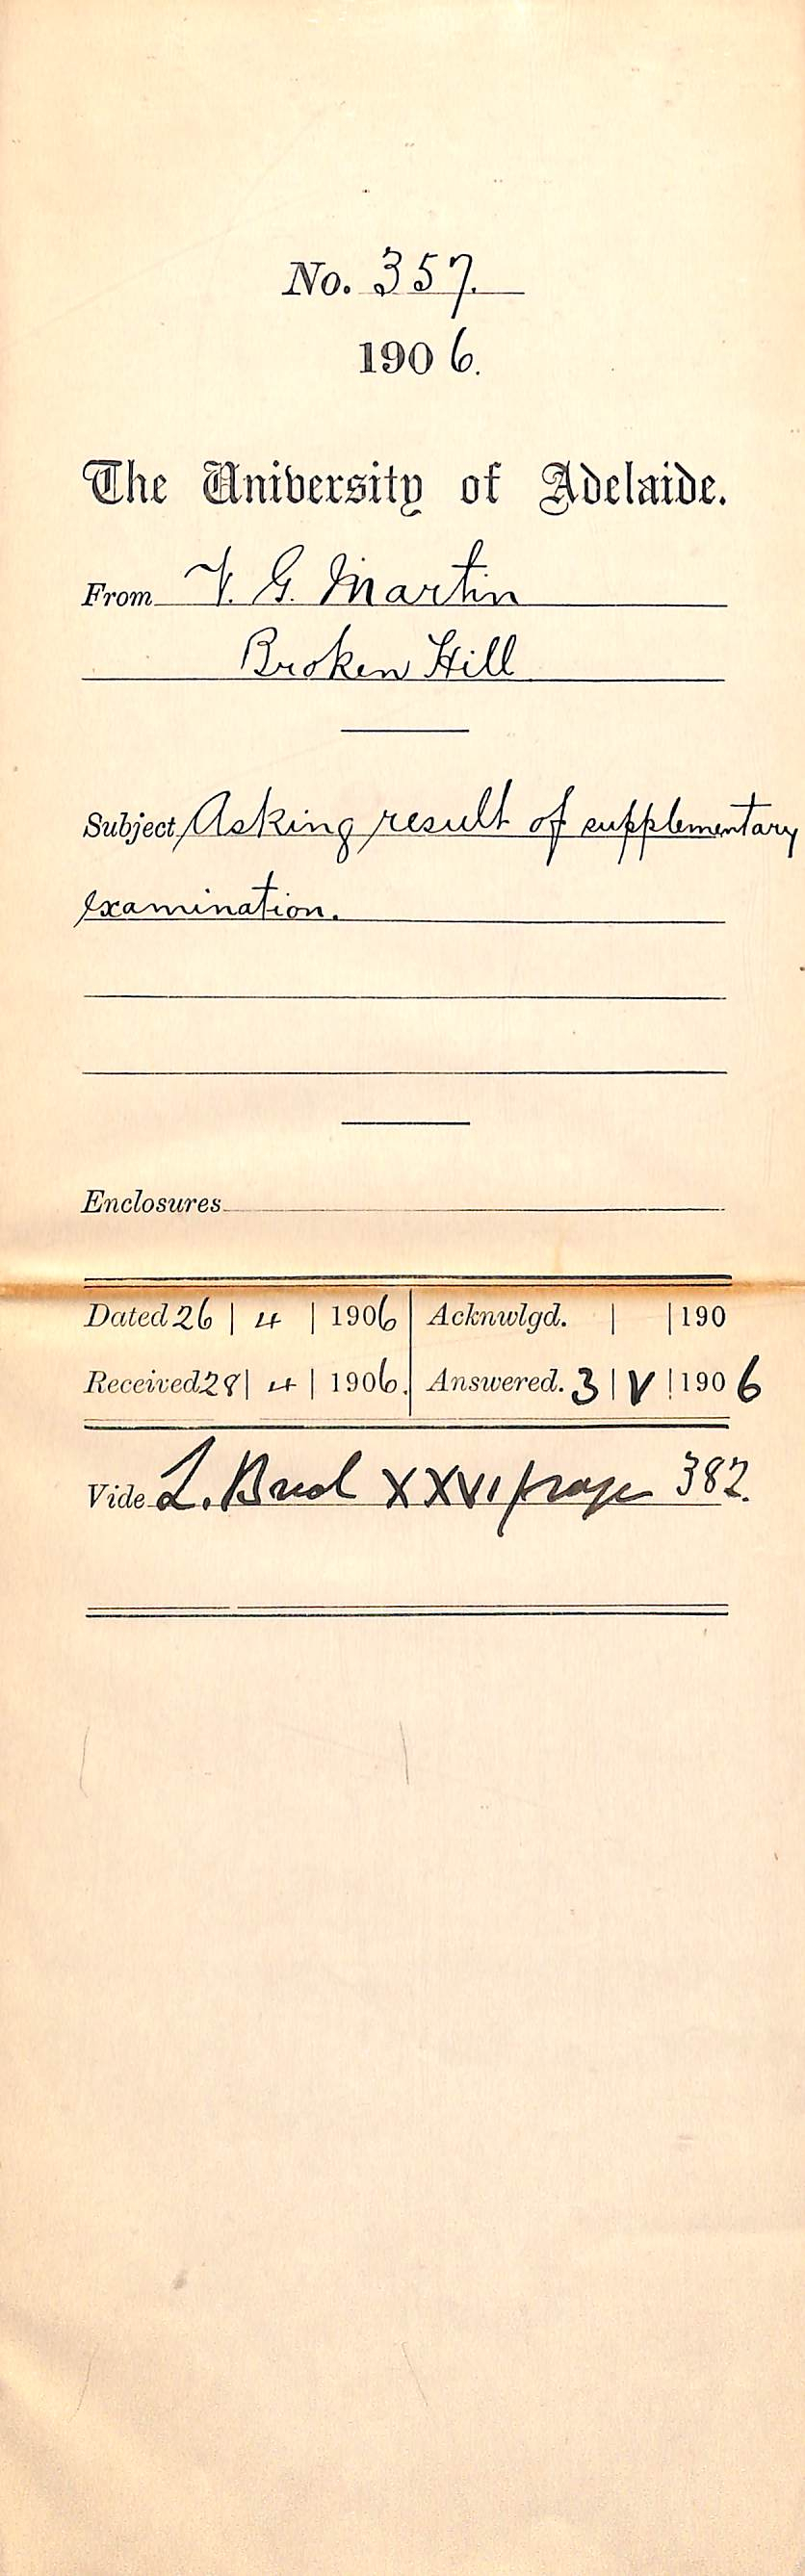 No. 357.
1906.
The University of Adelaide.
From V. G. Martin
Broken Hill
Subject Asking result of supplementary
examination.
Enclosures
Dated 26 | 4 | 1906 Acknwlgd. | | 190
Received 28 | 4 | 1906. Answered. 3 | V | 1906
Vide L. Book XXVI page 382.